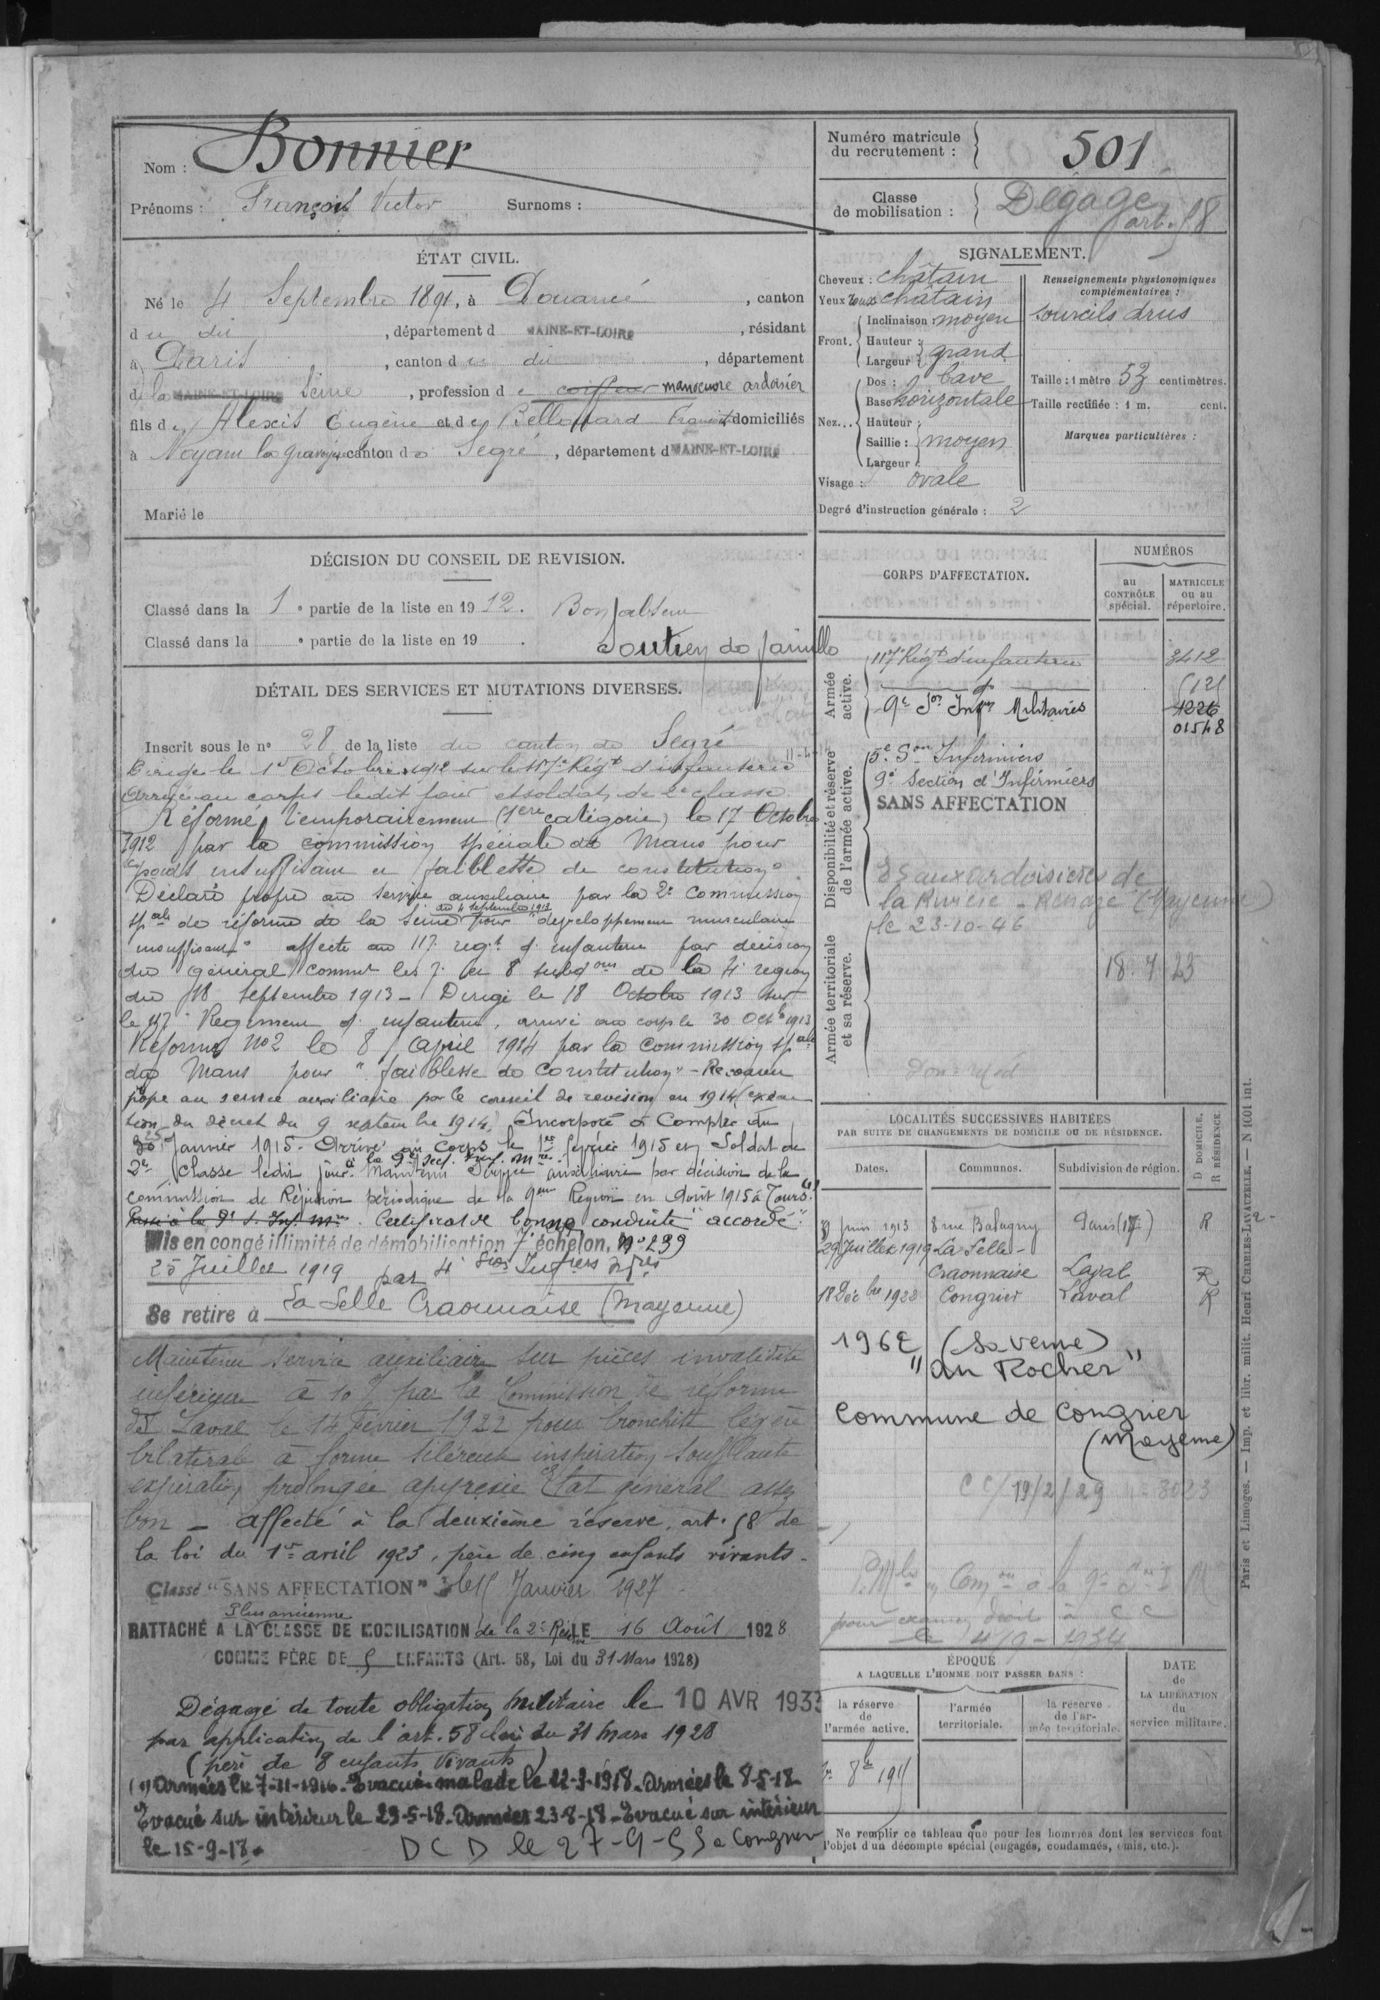 Nom : Bonnier
Prénoms : François Victor Surnoms :
Numéro matricule du recrutement : 501
Classe de mobilisation : Dégagé art. 58
ÉTAT CIVIL.
Né le 4 Septembre 1891, à Pouancé, canton
du dit, département d MAINE-ET-LOIRE, résidant
à Paris, canton du dit, département
de la MAINE-ET-LOIRE Seine, profession de coiffeur manoeuvre ardoisier
fils de Alexis Eugène et de Bellouard domiciliés
à Noyant la gravoyère canton de Segré, département d MAINE-ET-LOIRE
Marié le
SIGNALEMENT.
Cheveux : châtain
Yeux châtain
Front. Inclinaison : moyen
Hauteur :
Largeur : grand
Nez... Dos : cave
Base horizontale
Hauteur :
Saillie : moyen
Largeur :
Visage : ovale
Degré d'instruction générale : 2
Renseignements physionomiques complémentaires :
sourcils drus
Taille : 1 mètre 53 centimètres.
Taille rectifiée : 1 m. cent.
Marques particulières :
DÉCISION DU CONSEIL DE REVISION.
Classé dans la 1e partie de la liste en 1912. Bon absent
Classé dans la e partie de la liste en 19 . Soutien de famille
DÉTAIL DES SERVICES ET MUTATIONS DIVERSES.
Inscrit sous le no 28 de la liste du canton de Segré
Dirigé le 1er Octobre 1912 sur le 117e Régt d'infanterie
Arrivé au corps ledit jour et soldat de 2e classe.
Réformé temporairement (1ère catégorie) le 17 Octobre
1912 par la commission spéciale du Mans pour
"poids insuffisant et faiblesse de constitution"
Déclaré propre au service auxiliaire par la 2e Commission
spale de réforme de la Seine du 4 septembre 1913 pour "développement musculaire
insuffisant" affecté au 117 régt d'infanterie par décision
du général commt les 7 et 8 subdons de la 4e région
du 18 Septembre 1913 - Dirigé le 18 Octobre 1913 sur
le 117e Régiment d'infanterie, arrivé au corps le 30 Octbre 1913
Réformé No2 le 8 Avril 1914 par la commission spale
du Mans pour "faiblesse de constitution" - Reconnu
propre au service auxiliaire par le conseil de revision en 1914 (exécu-
tion du décret du 9 septembre 1914) Incorporé à compter du
25 Janvier 1915 - Arrivé au Corps le 1er février 1915 et Soldat de
2e Classe ledit jour à la 9e Sect. Inf. Mres Maintenu service auxiliaire par décision de la
commission de Réforme périodique de la 9eme Région en Août 1915 à Tours (1)
Passé à la 9e S. Inf. Mres. Certificat de bonne conduite "accordé".
Mis en congé illimité de démobilisation 7e échelon, No 239
25 Juillet 1919 par 4e Son Infiers Mres
Se retire à La Selle Craonnaise (Mayenne)
Maintenu service auxiliaire sur pièces invalidité
inférieure à 10 % par la Commission de réforme
de Laval le 14 Février 1922 pour bronchite légère
bilatérale à forme scléreuse inspiration soufflante
expiration prolongée apyrexie Etat général assez
bon - affecté à la deuxième réserve, art. 58 de
la loi du 1er avril 1923, père de cinq enfants vivants.
Classé "SANS AFFECTATION" le 15 Janvier 1927
RATTACHÉ A LA Plus ancienne CLASSE DE MOBILISATION de la 2e Réserve LE 16 Août 1928
COMME PÈRE DE 5 ENFANTS (Art. 58, Loi du 31 Mars 1928)
Dégagé de toute obligation militaire le 10 AVR 1933
par application de l'art. 58 loi du 31 Mars 1928
(père de 8 enfants vivants)
(1) Armées le 7-11-1916. Evacué malade le 22-3-1918. Armées le 8-5-18
Evacué sur intérieur le 29-5-18. Armées 23-8-18 - Evacué sur intérieur
le 15-9-18.
DCD le 27-9-55 a Congrier
CORPS D'AFFECTATION.
NUMÉROS
au CONTRÔLE spécial.
MATRICULE ou au répertoire.
Armée active.
117e Régt d'infanterie 3412
do 5121
9e Son Infers Militaires 4226
01548
Disponibilité et réserve de l'armée active.
5e Son Infirmiers
9e Section d'Infirmiers
SANS AFFECTATION
ES aux ardoisières de
la Rivière - Renazé (Mayenne)
Armée territoriale et sa réserve.
le 23-10-46
18.7.23
LOCALITÉS SUCCESSIVES HABITÉES
PAR SUITE DE CHANGEMENTS DE DOMICILE OU DE RÉSIDENCE.
Dates. Communes. Subdivision de région. D DOMICILE. R RÉSIDENCE.
8 Juin 1913 8 rue Balagny Paris (17e) R
29 Juillet 1919 La Selle-
Craonnaise Laval R
18 Décbre 1928 Congrier Laval R
1962 (Sa veuve)
"au Rocher"
Commune de Congrier
(Mayenne)
CC/19/2/29 n° 3023
pour examen droits à CC
le 4/9-1934
ÉPOQUE
A LAQUELLE L'HOMME DOIT PASSER DANS :
la réserve de l'armée active.
l'armée territoriale.
la réserve de l'armée territoriale.
DATE de LA LIBÉRATION du service militaire.
1er 8bre 1915
Ne remplir ce tableau que pour les hommes dont les services font
l'objet d'un décompte spécial (engagés, condamnés, omis, etc.).
Paris et Limoges. — Imp. et libr. milit. Henri CHARLES-LAVAUZELLE. — N 1601 int.